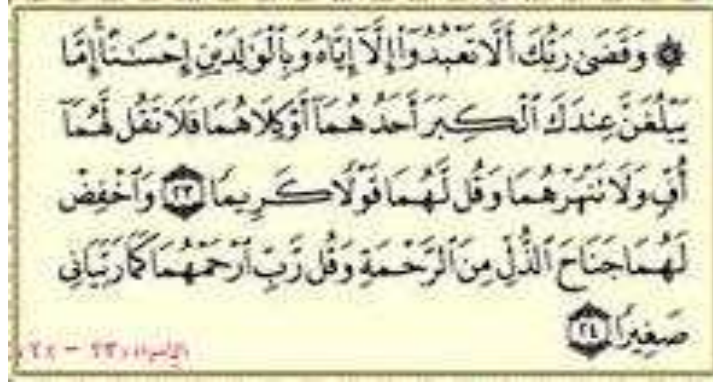 ۞ وَقَضَىٰ رَبُّكَ أَلَّا تَعْبُدُوٓا۟ إِلَّآ إِيَّاهُ وَبِٱلْوَٰلِدَيْنِ إِحْسَٰنًا ۚ إِمَّا
يَبْلُغَنَّ عِندَكَ ٱلْكِبَرَ أَحَدُهُمَآ أَوْ كِلَاهُمَا فَلَا تَقُل لَّهُمَآ
أُفٍّ وَلَا تَنْهَرْهُمَا وَقُل لَّهُمَا قَوْلًا كَرِيمًا ٢٣ وَٱخْفِضْ
لَهُمَا جَنَاحَ ٱلذُّلِّ مِنَ ٱلرَّحْمَةِ وَقُل رَّبِّ ٱرْحَمْهُمَا كَمَا رَبَّيَانِى
صَغِيرًا ٢٤
الإسراء: ٢٣ - ٢٤